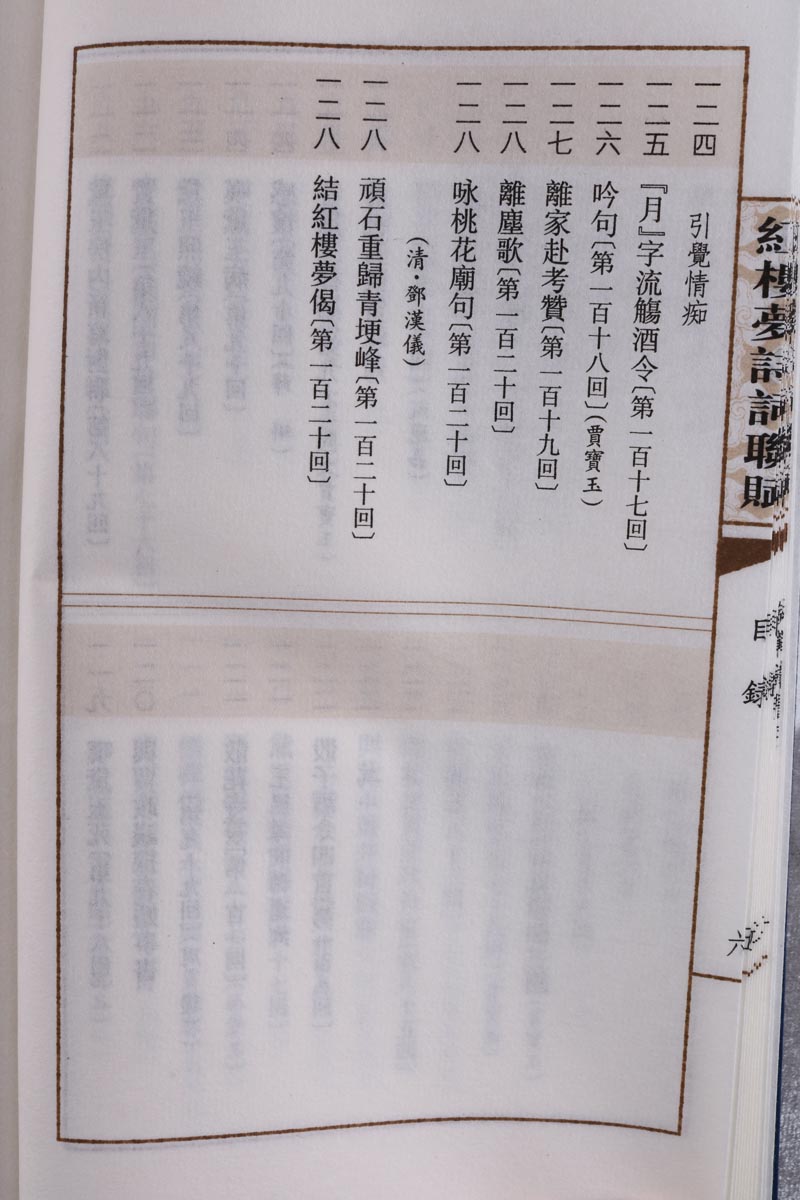 紅樓夢詩詞聯賦
目錄
六
一二四
引覺情痴
一二五
『月』字流觴酒令〔第一百十七回〕
一二六
吟句〔第一百十八回〕（賈寶玉）
一二七
離家赴考贊〔第一百十九回〕
一二八
離塵歌〔第一百二十回〕
一二八
咏桃花廟句〔第一百二十回〕
（清·鄧漢儀）
一二八
頑石重歸青埂峰〔第一百二十回〕
一二八
結紅樓夢偈〔第一百二十回〕